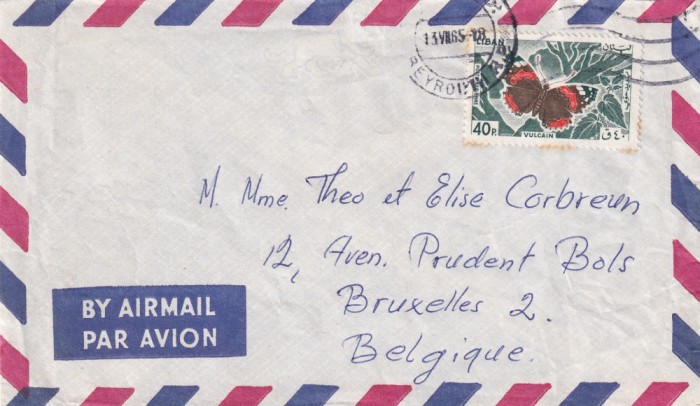 13 VII 65 - 18
BEYROUTH
LIBAN
40 P.
VULCAIN
ق ٤٠
M. Mme. Theo et Elise Corbreun
12, Aven. Prudent Bols
Bruxelles 2.
Belgique.
BY AIRMAIL
PAR AVION